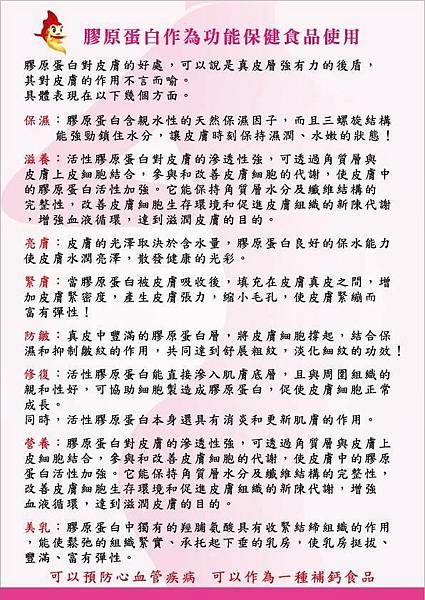 膠原蛋白作為功能保健食品使用
膠原蛋白對皮膚的好處，可以說是真皮層強有力的後盾，
其對皮膚的作用不言而喻。
具體表現在以下幾個方面。
保濕：膠原蛋白含親水性的天然保濕因子，而且三螺旋結構
能強勁鎖住水分，讓皮膚時刻保持濕潤、水嫩的狀態！
滋養：活性膠原蛋白對皮膚的滲透性強，可透過角質層與
皮膚上皮細胞結合，參與和改善皮膚細胞的代謝，使皮膚中
的膠原蛋白活性加強。它能保持角質層水分及纖維結構的
完整性，改善皮膚細胞生存環境和促進皮膚組織的新陳代謝
，增強血液循環，達到滋潤皮膚的目的。
亮膚：皮膚的光澤取決於含水量，膠原蛋白良好的保水能力
使皮膚水潤亮澤，散發健康的光彩。
緊膚：當膠原蛋白被皮膚吸收後，填充在皮膚真皮之間，增
加皮膚緊密度，產生皮膚張力，縮小毛孔，使皮膚緊繃而
富有彈性！
防皺：真皮中豐滿的膠原蛋白層，將皮膚細胞撐起，結合保
濕和抑制皺紋的作用，共同達到舒展粗紋，淡化細紋的功效！
修復：活性膠原蛋白能直接滲入肌膚底層，且與周圍組織的
親和性好，可協助細胞製造成膠原蛋白，促使皮膚細胞正常
成長。
同時，活性膠原蛋白本身還具有消炎和更新肌膚的作用。
營養：膠原蛋白對皮膚的滲透性強，可透過角質層與皮膚上
皮細胞結合，參與和改善皮膚細胞的代謝，使皮膚中的膠原
蛋白活性加強。它能保持角質層水分及纖維結構的完整性，
改善皮膚細胞生存環境和促進皮膚組織的新陳代謝，增強
血液循環，達到滋潤皮膚的目的。
美乳：膠原蛋白中獨有的羥脯氨酸具有收緊結締組織的作用
，能使鬆弛的組織緊實、承托起下垂的乳房，使乳房挺拔、
豐滿、富有彈性。
可以預防心血管疾病 可以作為一種補鈣食品